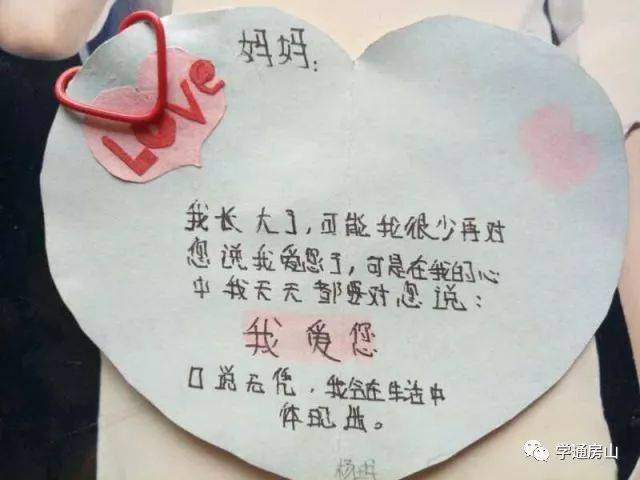 妈妈：
LOVE
我长大了，可能我很少再对
您说我爱您了，可是在我的心
中我天天都要对您说：
我爱您
口说无凭，我会在生活中
体现出。
学通房山